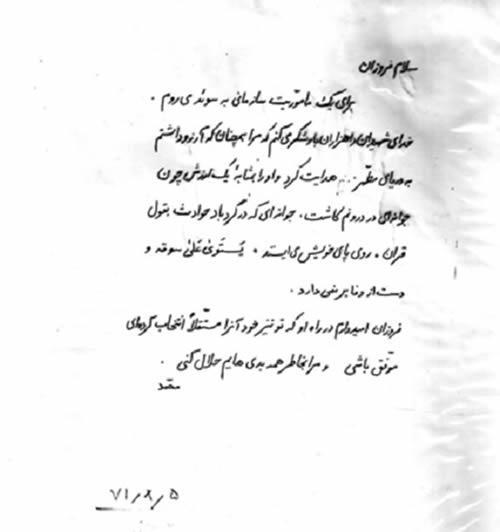 سلام فروزان
برای یک مأموریت سازمانی به سوئد می روم .
خدای شهیدان را هزاران بار شکر می کنم که مرا همچنان که آرزو داشتم
به دریای مطهر هدایت کرد و او را بمثابهٔ یک اندیش چون
جوانه‌ای در درونم کاشت . جوانه‌ای که در گردباد حوادث بقول
قران ، روی پای خویش می ایستد . یَستَوی عَلی سوقه و
دست از وفا بر نمی دارد .
فروزان امیدوارم در راه او که تو نیز خود آنرا مستقلاً انتخاب کرده‌ای
موّفق باشی و مرا بخاطر همه بدی هایم حلال کنی .
۷۱٫۸٫۵